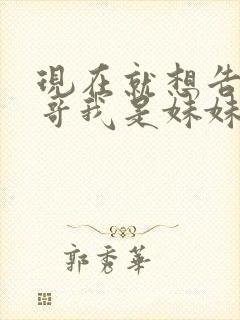 現在就想告
哥我是妹妹
郭秀華